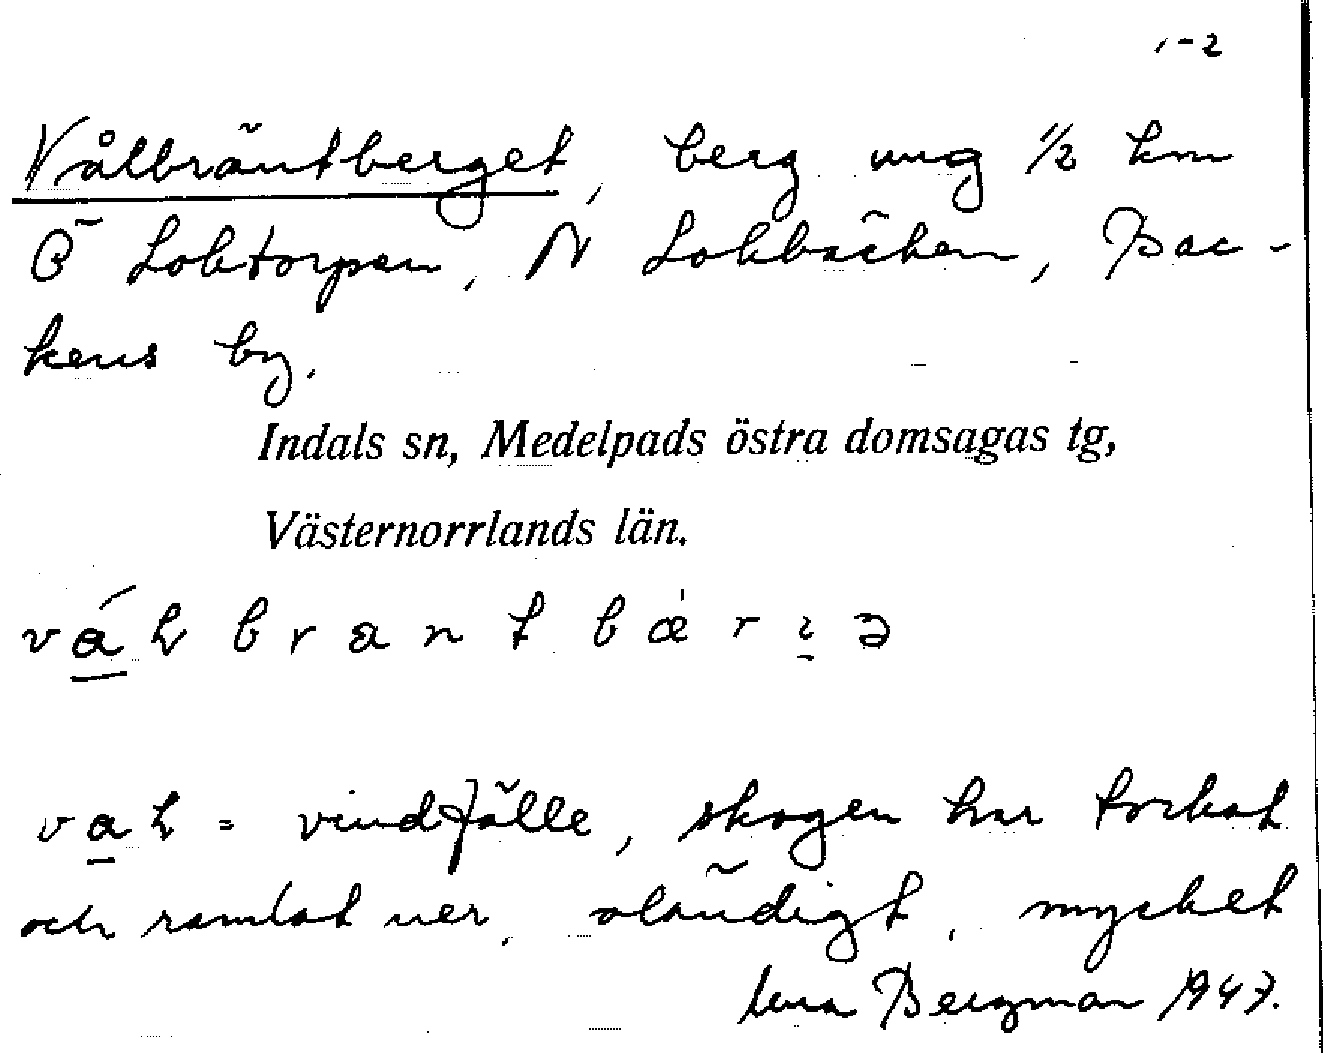 1-2
Vålbräntberget, berg ung 1/2 km
Ö Loktorpen, N Lokbäcken, Bac-
kens by.
Indals sn, Medelpads östra domsagas tg,
Västernorrlands län.
brantbær
= vindfälle, skogen har torkat
och ramlat ner, oländigt, mycket
Bergman 1947.